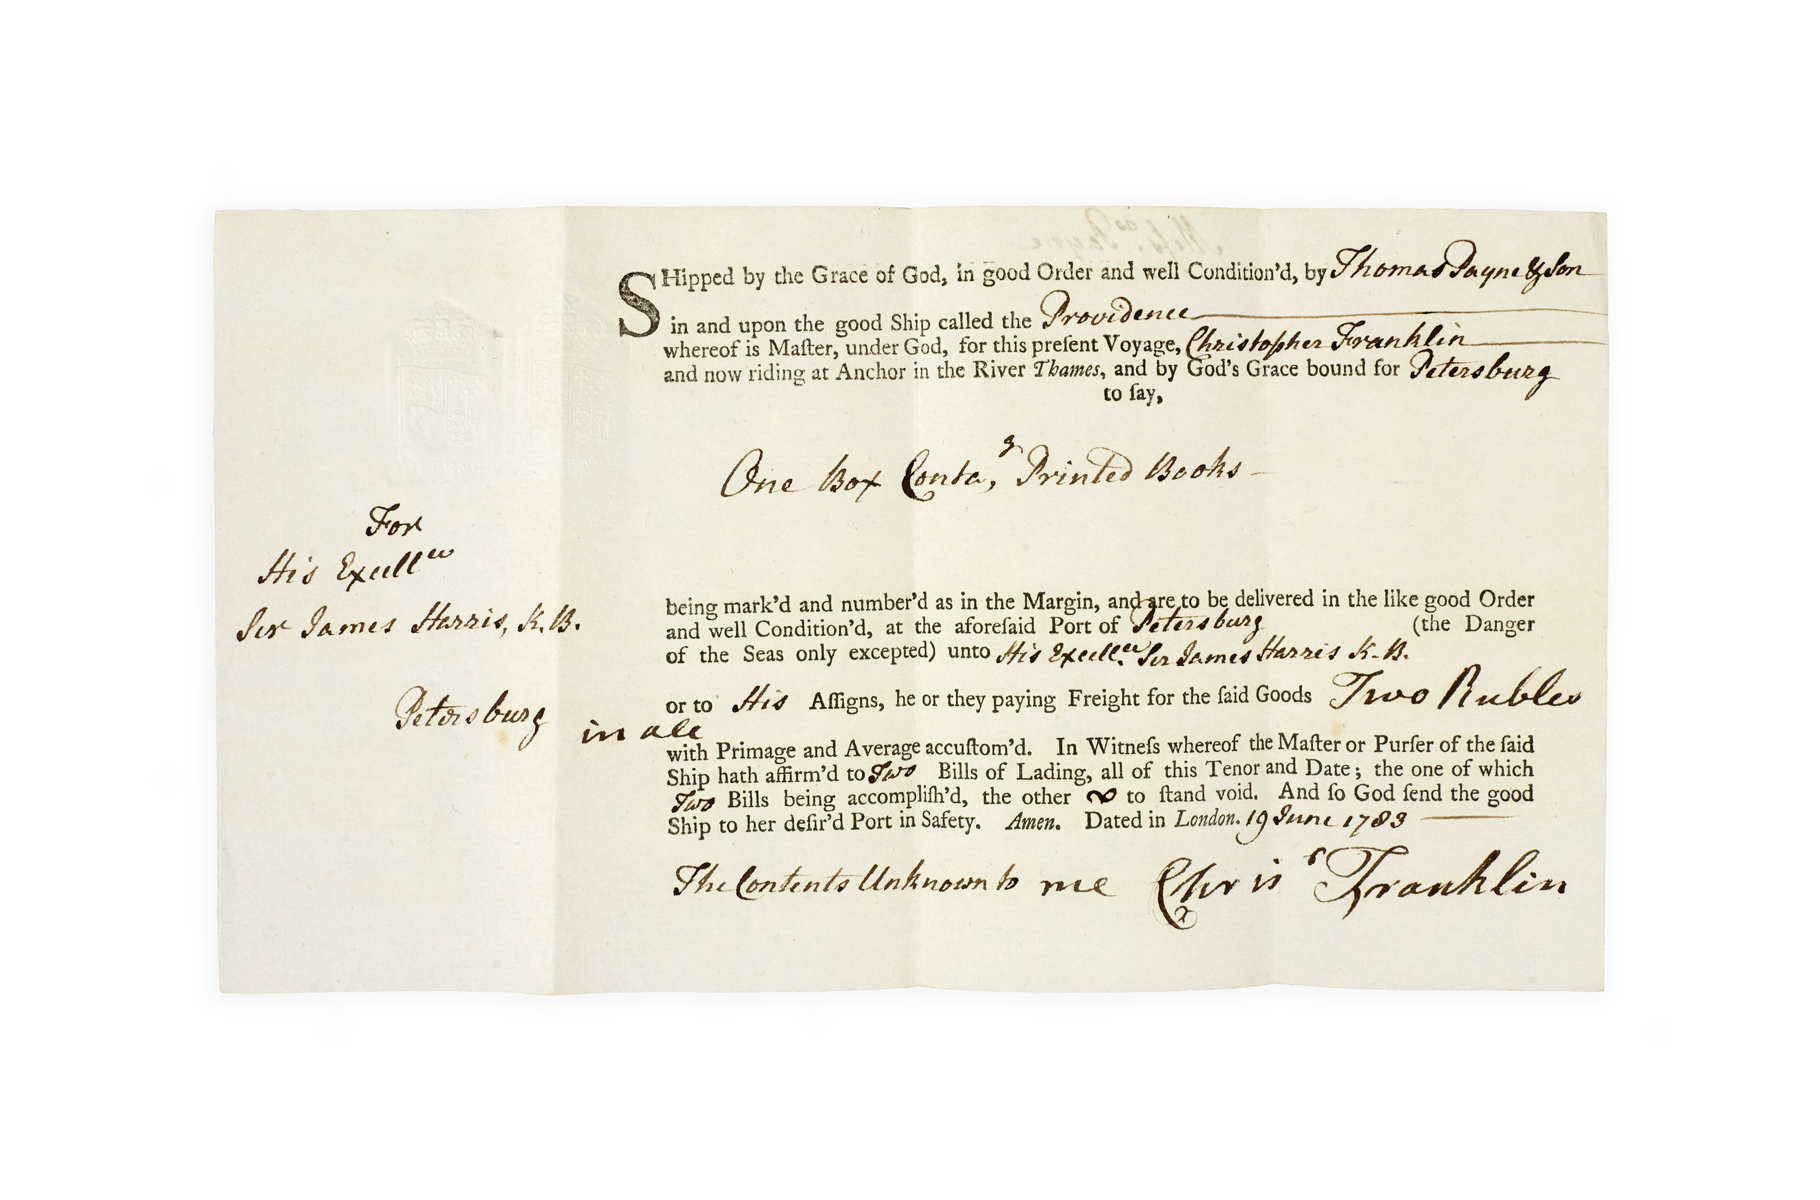 SHipped by the Grace of God, in good Order and well Condition'd, by Thomas Payne & Son
in and upon the good Ship called the Providence
whereof is Maſter, under God, for this preſent Voyage, Christopher Franklin
and now riding at Anchor in the River Thames, and by God's Grace bound for Petersburg
to ſay,
One Box Conta,g Printed Books
For
His Excellcy
Sir James Harris, K.B.
Petersburg
being mark'd and number'd as in the Margin, and are to be delivered in the like good Order
and well Condition'd, at the aforeſaid Port of Petersburg (the Danger
of the Seas only excepted) unto His Excellcy. Sir James Harris K.B.
or to His Aſſigns, he or they paying Freight for the ſaid Goods Two Rubles
in all
with Primage and Average accuſtom'd. In Witneſs whereof the Maſter or Purſer of the ſaid
Ship hath affirm'd to Two Bills of Lading, all of this Tenor and Date; the one of which
Two Bills being accompliſh'd, the other to ſtand void. And ſo God ſend the good
Ship to her deſir'd Port in Safety. Amen. Dated in London. 19 June 1783
The Contents Unknown to me Chrisr Franklin